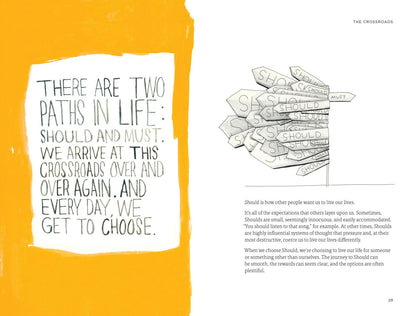 THERE ARE TWO
PATHS IN LIFE:
SHOULD AND MUST.
WE ARRIVE AT THIS
CROSSROADS OVER AND
OVER AGAIN. AND
EVERY DAY, WE
GET TO CHOOSE.
THE CROSSROADS
SHOULD
SHOULD
SHOULD
SHOULD
SHOULD
MUST
Should is how other people want us to live our lives.
It's all of the expectations that others layer upon us. Sometimes,
Shoulds are small, seemingly innocuous, and easily accommodated.
"You should listen to that song," for example. At other times, Shoulds
are highly influential systems of thought that pressure and, at their
most destructive, coerce us to live our lives differently.
When we choose Should, we're choosing to live our life for someone
or something other than ourselves. The journey to Should can
be smooth, the rewards can seem clear, and the options are often
plentiful.